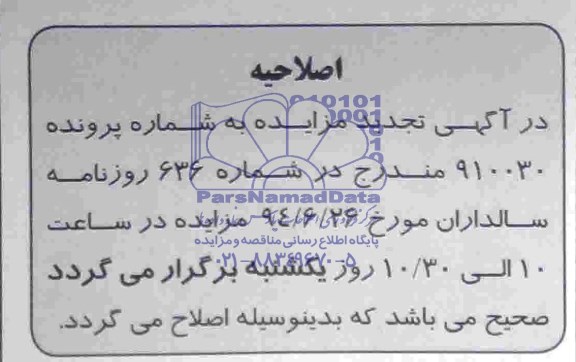 اصلاحیه
در آگهی تجدید مزایده به شماره پرونده
۹۱۰۰۳۰ مندرج در شماره ۶۳۶ روزنامه
سالداران مورخ ۹۴/۶/۲۶ مزایده در ساعت
۱۰ الی ۱۰/۳۰ روز یکشنبه برگزار می گردد
صحیح می باشد که بدینوسیله اصلاح می گردد.
ParsNamadData
پایگاه اطلاع رسانی مناقصه و مزایده
۰۲۱-۸۸۳۴۹۶۷۰-۵